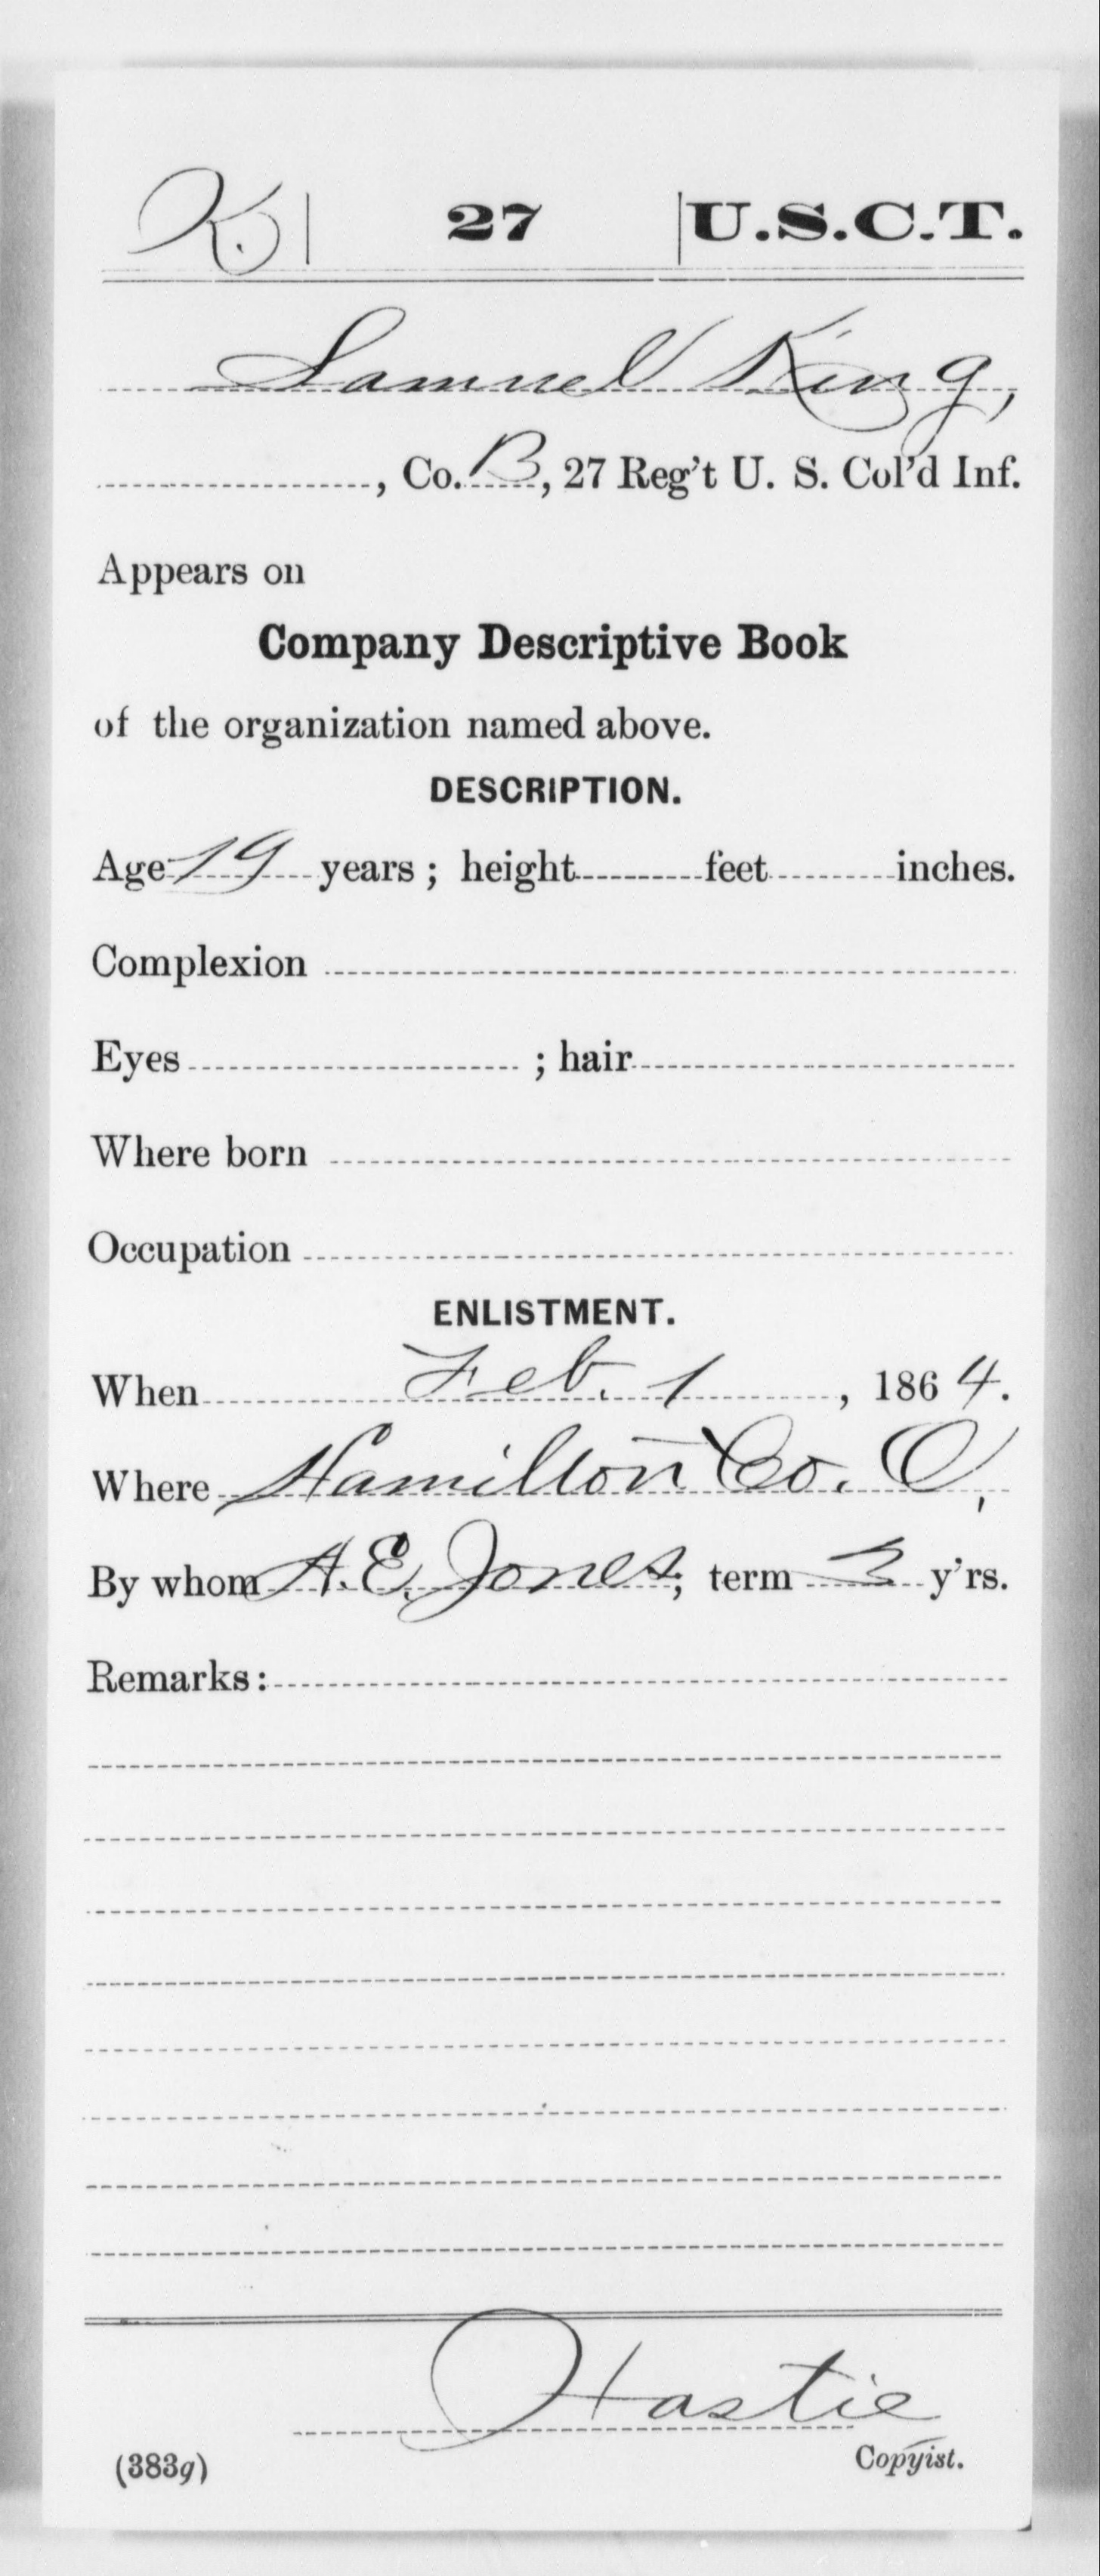 K. | 27 | U.S.C.T.
Samuel King,
, Co. B, 27 Reg't U. S. Col'd Inf.
Appears on
Company Descriptive Book
of the organization named above.
DESCRIPTION.
Age 19 years; height feet inches.
Complexion
Eyes ; hair
Where born
Occupation
ENLISTMENT.
When Feb. 1, 1864.
Where Hamilton Co. O,
By whom A.E. Jones; term 3 y'rs.
Remarks:
Hastie
(383g) Copyist.